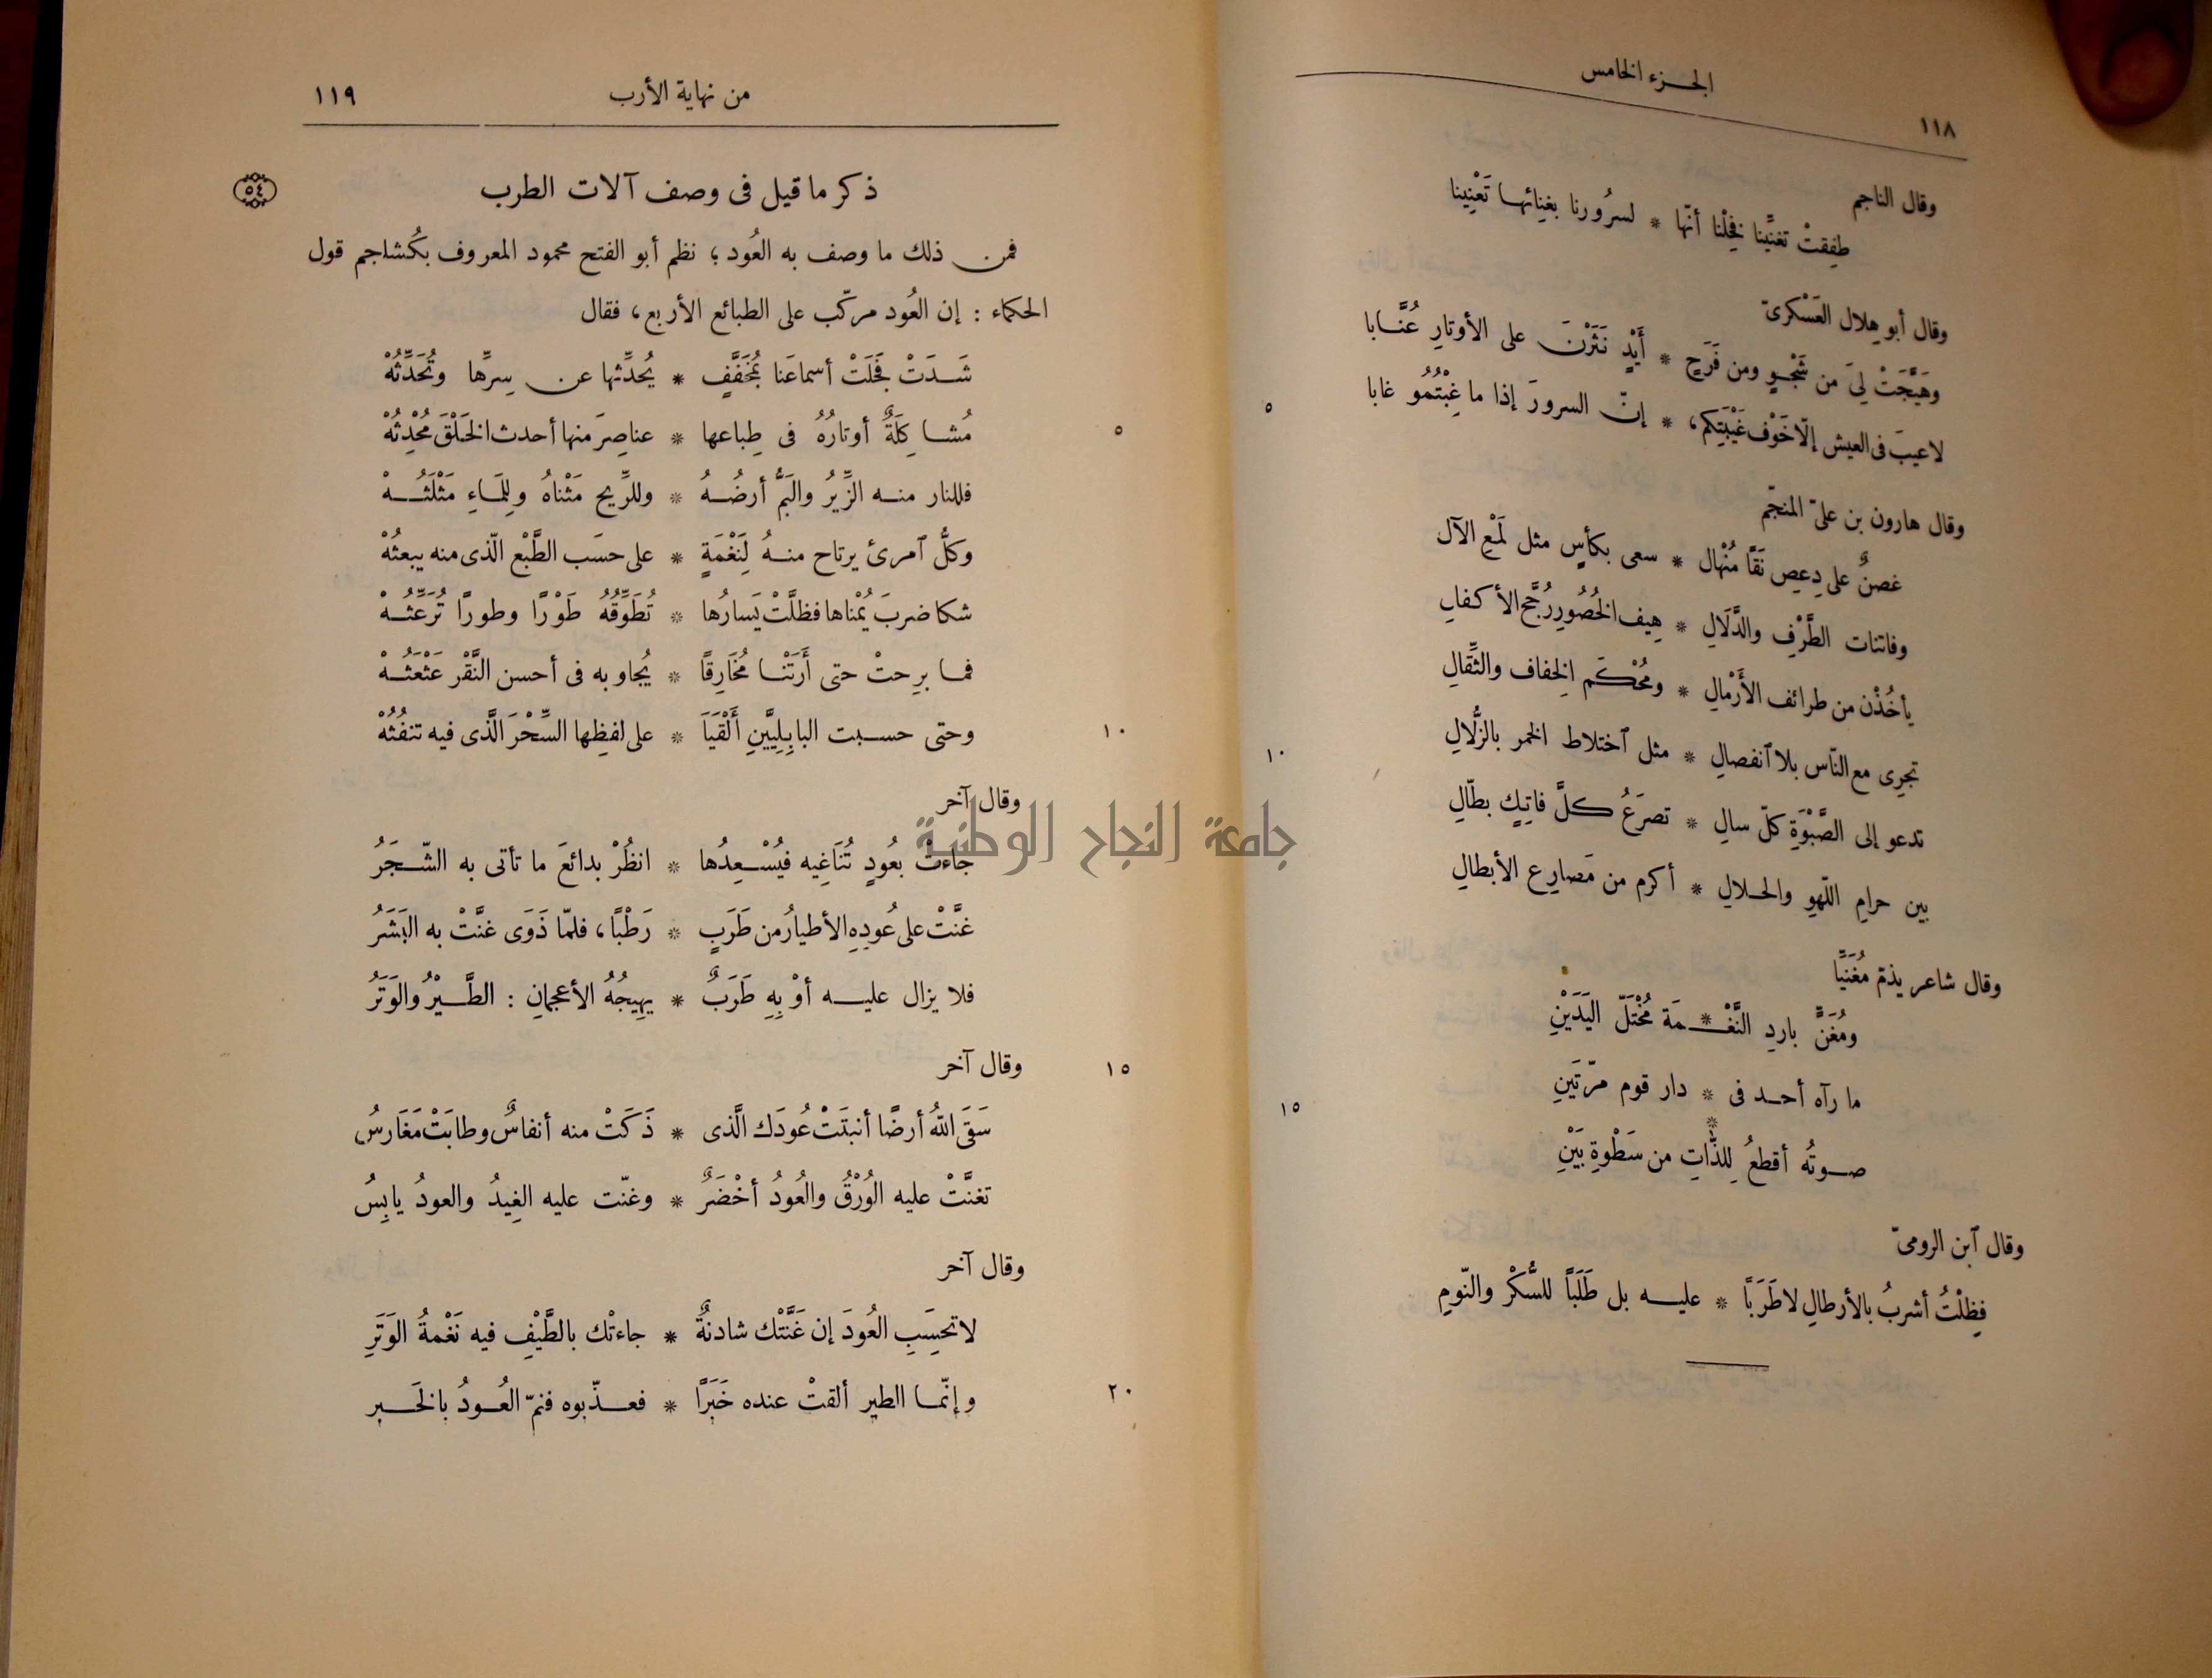 الجزء الخامس
١١٨
وقال الناجم
طفِقتْ تغنّينا فخِلْنا أنّها * لسرُورنا بغنِائها تَعْنِينا
وقال أبو هلال العَسْكرىّ
وهَيَّجَتْ لِىَ من شَجْوٍ ومن فَرَحٍ * أَيْدٍ نَثَرْنَ على الأوتارِ عُنَّابا
لا عيبَ فى العيش إلّا خَوْف غَيْبَتِكم، * إنّ السرورَ إذا ما غِبْتُمُو غابا
٥
وقال هارون بن علىّ المنجّم
غصنٌ على دِعصِ نَقًا مُنْهال * سعى بكأسٍ مثل لَمْعِ الآل
وفاتنات الطَّرْفِ والدَّلَالِ * هِيف الخُصُورِ رُجَّح الأكفالِ
يأخُذْن من طرائف الأَرْمالِ * ومُحْكَم الِخفاف والثِّقالِ
تجرِى مع النّاس بلا ٱنفصالِ * مثل ٱختلاط الخمر بالزُّلالِ
١٠
تدعو إلى الصَّبْوَةِ كلّ سالِ * تصرَعُ كلَّ فاتِكٍ بطّالِ
بين حرامِ اللّهوِ والحلالِ * أكرم من مَصارِع الأبطالِ
وقال شاعر يذمّ مُغَنّيًا
ومُغَنٍّ بارِدِ النَّغْـ * ـمَة مُخْتَلّ اليَدَيْنِ
ما رآه أحد فى * دار قوم مرّتَينِ
١٥
صوتُه أقطعُ لِلذّاتِ * من سَطْوةِ بَيْنِ
وقال ٱبن الرومىّ
فظِلْتُ أشربُ بالأرطالِ لا طَرَبًا * عليه بل طَلَبًا للسُّكْر والنّومِ
من نهاية الأرب
١١٩
ذكر ما قيل فى وصف آلات الطرب
٥٤
فمن ذلك ما وصف به العُود؛ نظم أبو الفتح محمود المعروف بكُشاجم قول
الحكماء : إن العُود مركّب على الطبائع الأربع، فقال
شَدَتْ فَجَلَتْ أسماعَنا بمُخَفَّفٍ * يُحدِّثها عن سِرِّها وتُحَدِّثُهْ
مُشاكِلَةٌ أوتارُهُ فى طِباعها * عناصِرَ منها أحدث الخَلْقَ مُحْدِثُهْ
٥
فللنار منه الزِّيرُ والبَمُّ أرضُهُ * وللرِّيح مَثْناهُ ولِلمَاءِ مَثْلَثُهْ
وكلُّ ٱمرئ يرتاح منهُ لِنَغْمَةٍ * على حسَب الطَّبْع الّذى منه يبعثُهْ
شكا ضربَ يُمْناها فظلَّتْ يَسارُها * تُطَوِّقُهُ طَوْرًا وطورًا تُرَعِّثُهْ
فما برِحتْ حتى أَرَتْنا مُخَارِقًا * يُجاوبه فى أحسن النَّقْر عَثْعَثُهْ
وحتى حسبت البابِلِيَّينِ أَلْقَيَا * على لفظِها السِّحْرَ الَّذى فيه تنفُثُهْ
١٠
وقال آخر
جاءتْ بعُودٍ تُنَاغِيه فيُسْعِدُها * انظُرْ بدائعَ ما تأتى به الشّجَرُ
غنَّتْ على عُودِهِ الأطيارُ من طَرَبٍ * رَطْبًا، فلمّا ذَوَى غنَّتْ به البَشَرُ
فلا يزال عليه أوْ بِهِ طَرَبٌ * يهِيجُهُ الأعجمانِ : الطَّيْرُ والوَتَرُ
وقال آخر
١٥
سَقَى اللهُ أرضًا أنبتَتْ عُودَك الَّذى * ذَكَتْ منه أنفاسٌ وطابَتْ مَغَارِسُ
تغنَّتْ عليه الوُرْقُ والعُودُ أخْضَرٌ * وغنّت عليه الغِيدُ والعودُ يابِسُ
وقال آخر
لا تحسَبِ العُودَ إن غَنَّتْك شادنةٌ * جاءتْك بالطَّيْفِ فيه نَغْمةُ الوَتَرِ
وإنّما الطير ألقتْ عنده خَبَرًا * فعذّبوه فنمّ العُودُ بالخَبر
٢٠
جامعة النجاح الوطنية